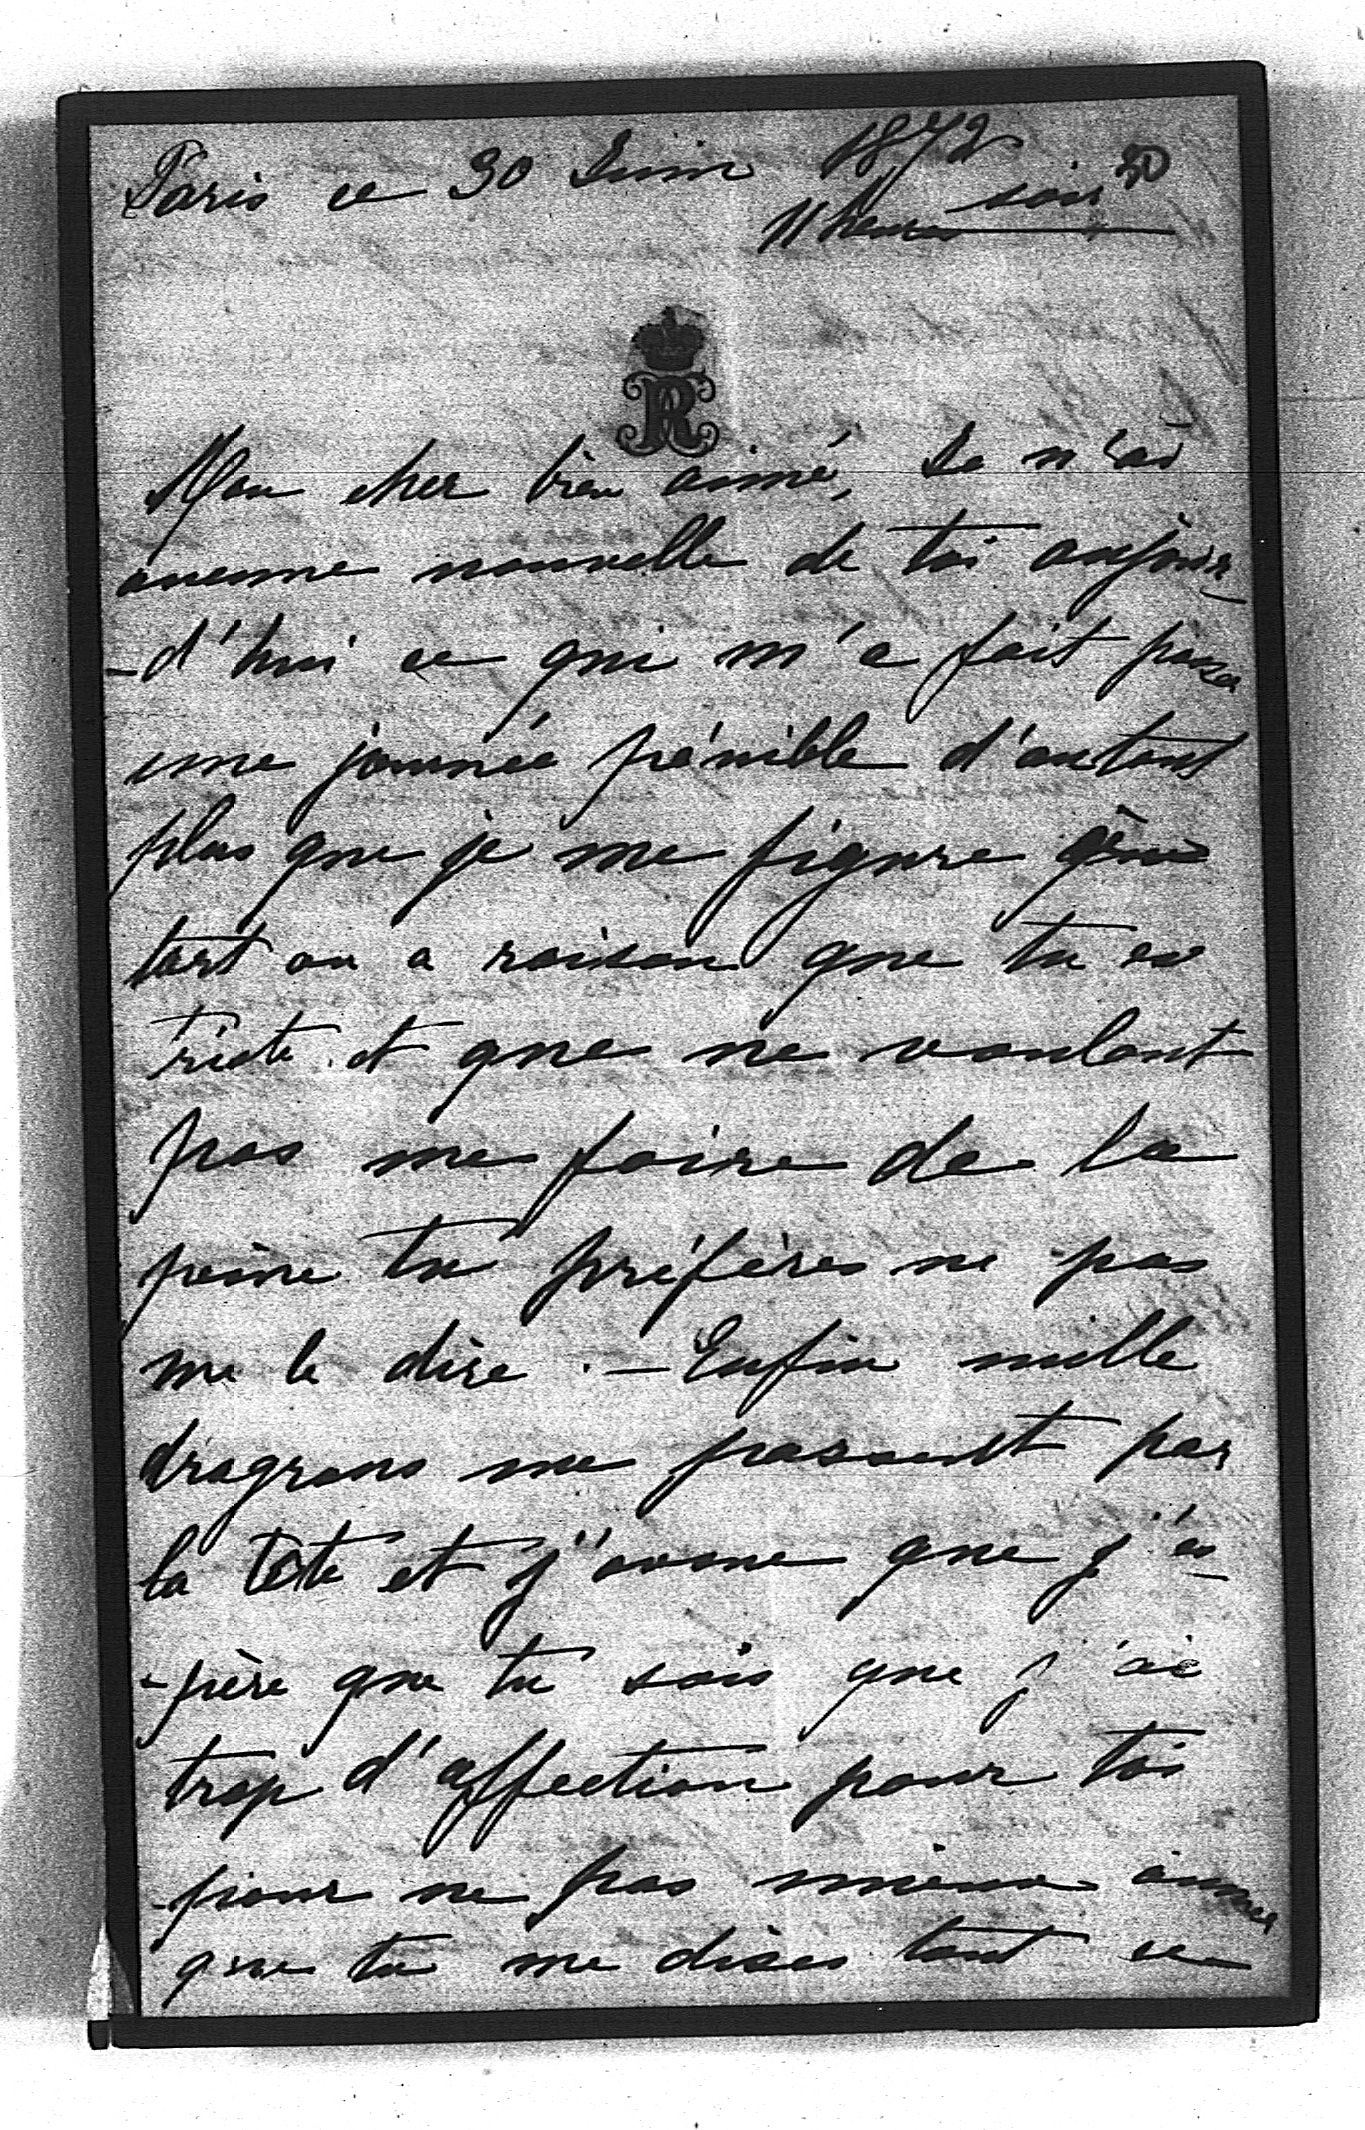 Paris ce 30 Juin 1872
11 heures soir
R
Mon cher bien aimé, Je n'ai
aucune nouvelle de toi aujour
-d'hui ce qui m'a fait passer
une journée pénible d'autant
plus que je me figure
tort ou a raison que tu es
triste et que ne voulant
pas me faire de la
peine tu préfères ne pas
me le dire. — Enfin mille
dragons me passent par
la tête et j'avoue que j'es-
-père que tu sais que j'ai
trop d'affection pour toi
pour ne pas mieux aimer
que tu me dises tout ce